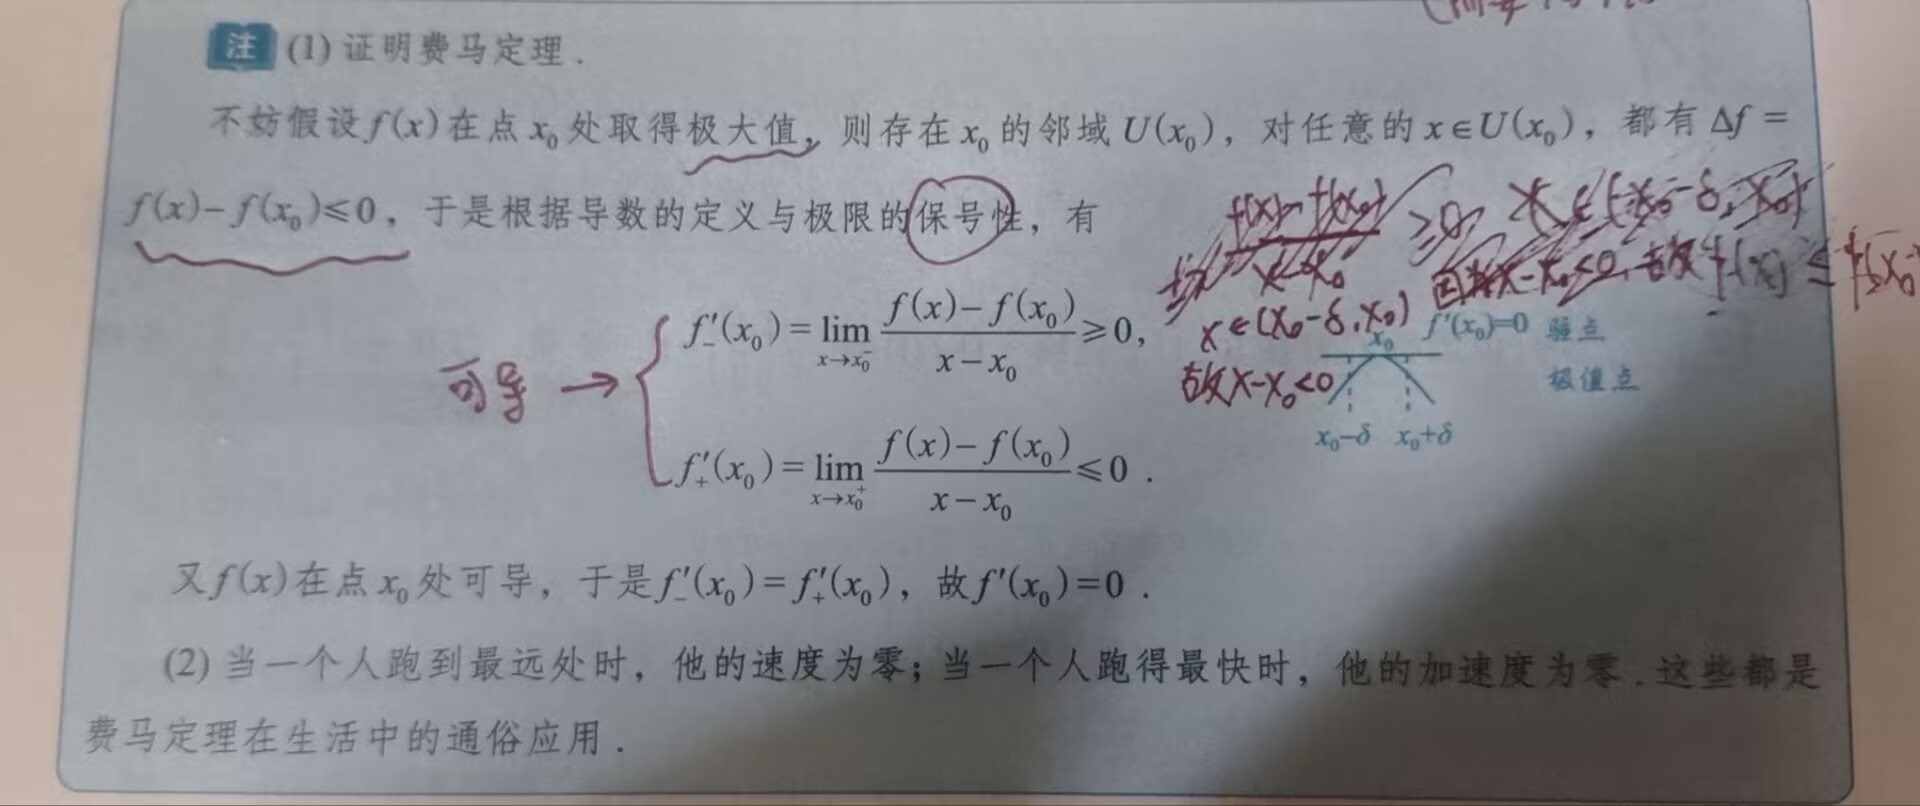 注 (1) 证明费马定理.
不妨假设 f(x) 在点 x₀ 处取得极大值, 则存在 x₀ 的邻域 U(x₀), 对任意的 x∈U(x₀), 都有 Δf =
f(x)-f(x₀)≤0, 于是根据导数的定义与极限的保号性, 有
f(x)-f(x₀)
x-x₀
≥0
因为x-x₀<0, 故f(x)≤f(x₀)
f′₋(x₀)=lim_{x→x₀⁻} (f(x)-f(x₀))/(x-x₀) ≥0,
x∈(x₀-δ,x₀)
故x-x₀<0
x₀
f′(x₀)=0 驻点
极值点
x₀-δ x₀+δ
可导→
f′₊(x₀)=lim_{x→x₀⁺} (f(x)-f(x₀))/(x-x₀) ≤0.
又 f(x) 在点 x₀ 处可导, 于是 f′₋(x₀)=f′₊(x₀), 故 f′(x₀)=0.
(2) 当一个人跑到最远处时, 他的速度为零; 当一个人跑得最快时, 他的加速度为零. 这些都是
费马定理在生活中的通俗应用.